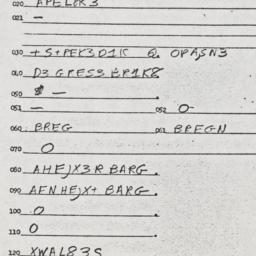 020 APELEK3
021 —
030 +S+PEK3D1K Q. OPAJSN3
040 D3GPESS EP1K8
050 8 —
051 — 052 O-
060 BREG 061 BREGN
070 O
080 AHEJX3R BARG.
090 AFNHEJX+ BARG.
100 O
110 O
120 XWAL83S